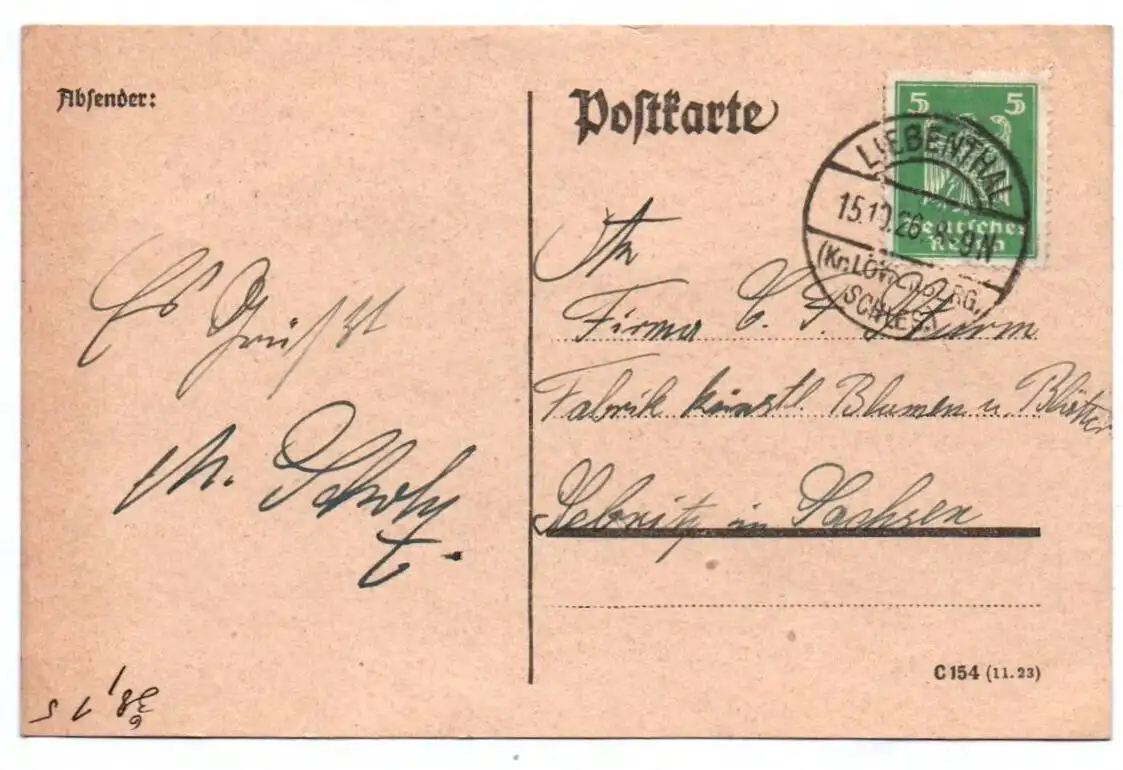 Absender:
Postkarte
5 5
Deutsches
Reich
LIEBENTHAL
15.10.26. 8-9N
(Kr. LÖWENBERG,
SCHLES.)
Es Grüßt
M. Scholz
An
Firma C. Sturm
Fabrik künstl. Blumen u. Blätter
Sebnitz in Sachsen
C 154 (11. 23)